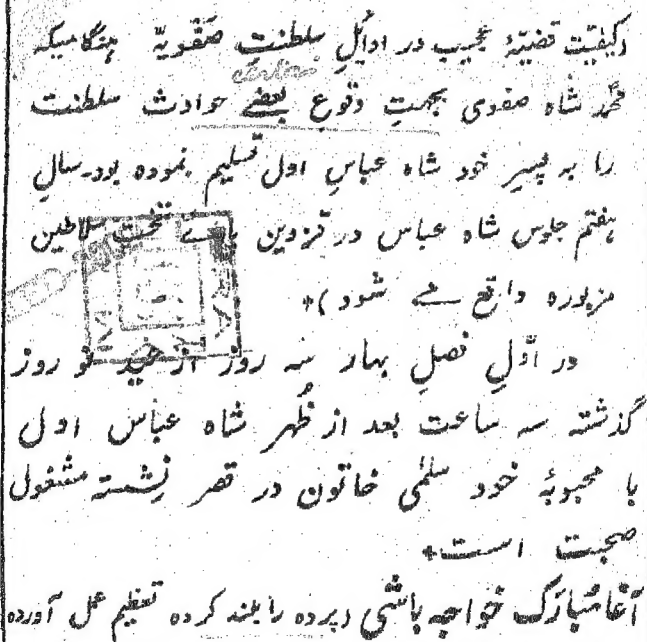 (کیفیّت قضیّۂ عجیب در اوائلِ سلطنتِ صفَویّہ ہنگامیکہ
محمّد شاہ صفوی بجہتِ وقوعِ بعضے حوادث سلطنت
را بہ پسرِ خود شاہ عباسِ اول تسلیم نمودہ بود۔ سالِ
ہفتم جلوس شاہ عباس در قزوین پائے تخت سلاطین
مزبورہ واقع مے شود)+
در اوّلِ فصلِ بہار سہ روز از عید نو روز
گذشتہ سہ ساعت بعد از ظُہر شاہ عباس اول
با محبوبۂ خود سلمٰی خاتون در قصر نِشستہ مشغول
صحبت است+
آغا مُبارَک خواجہ باشی (پردہ را بلند کردہ تعظیم عمل آوردہ